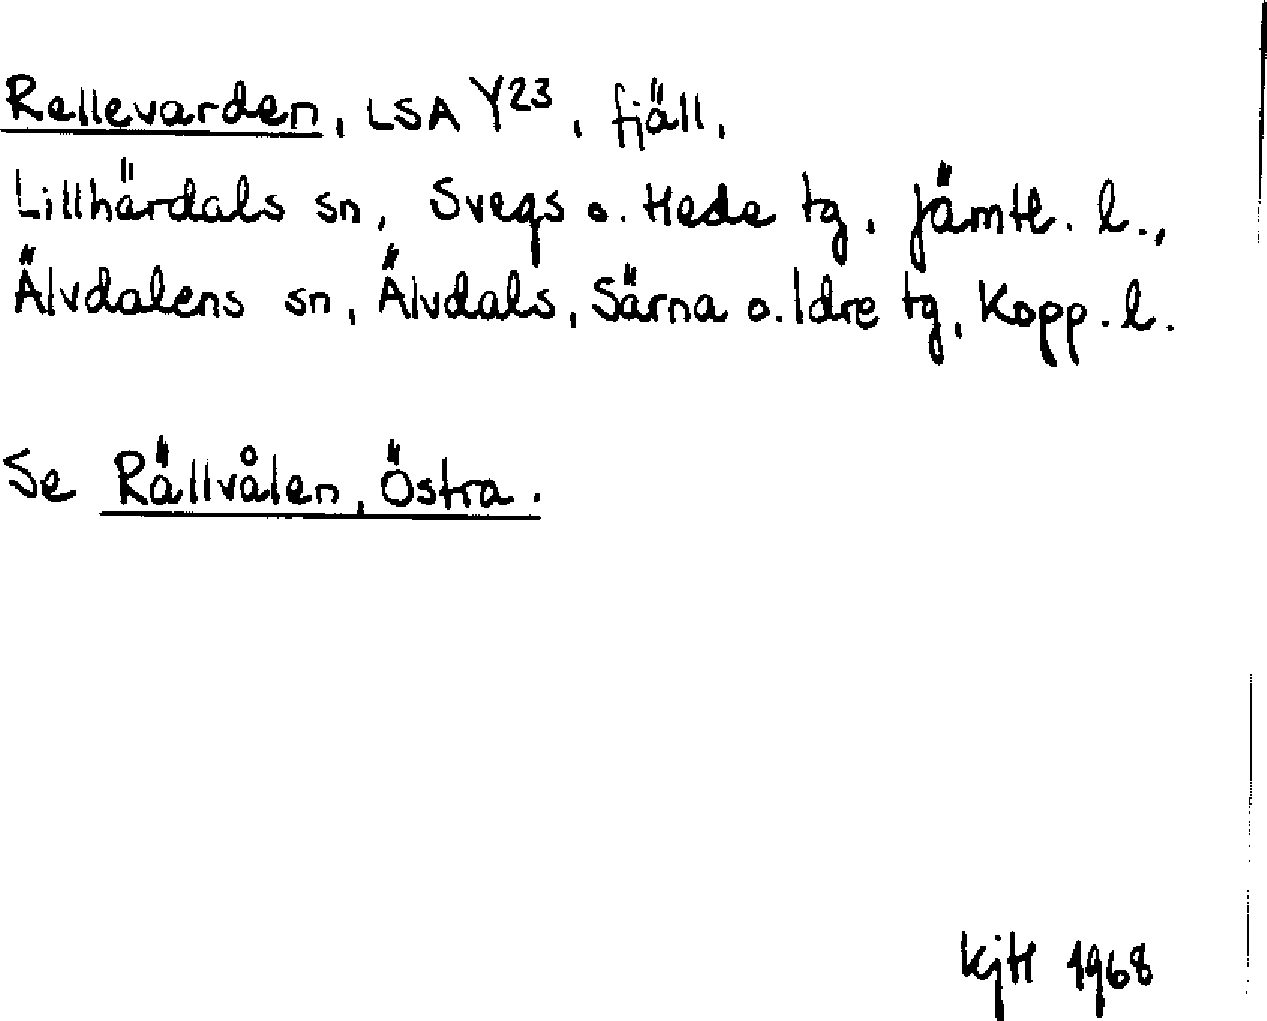 Rellevarden, LSA Y23, fjäll,
Lillhärdals sn, Svegs o. Hede tg, Jämtl. l.,
Älvdalens sn, Älvdals, Särna o. Idre tg, Kopp. l.
Se Rällvålen, Östra.
KjH 1968